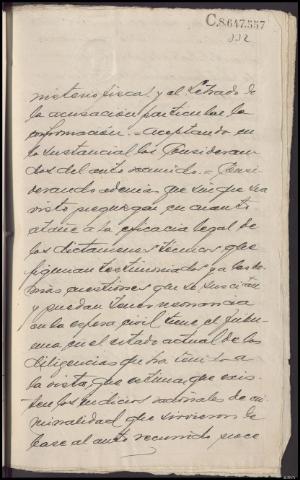 C.8.647.557
332
nisterio fiscal y al Letrado de
la acusación particular la
confirmación.= Aceptando en
lo sustancial los Consideran
dos del auto recurrido.= Consi
derando además que sin que sea
visto prejuzgar en cuanto
atañe a la eficacia legal de
los dictamenes técnicos que
figuran testimoniados y a las de
más cuestiones que se suscitan
y puedan tener resonancia
en la esfera civil tiene el Tribu
nal, en el estado actual de las
diligencias que ha tenido a
la vista, que estimar que exis
ten los indicios racionales de cri
minalidad que sirvieron de
base al auto recurrido, proce